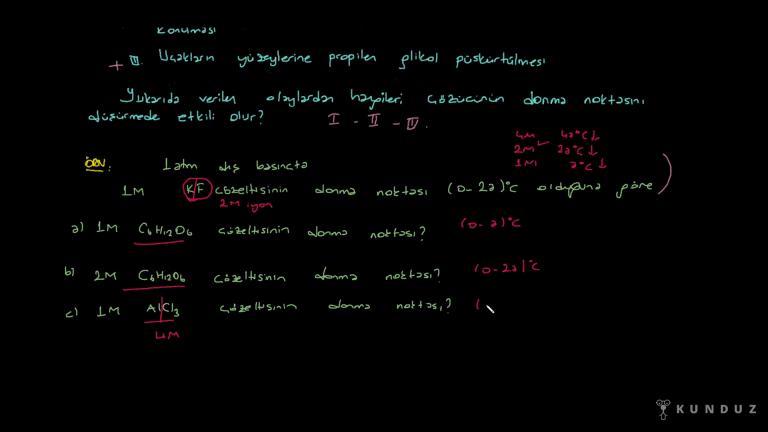 konulması
+ III. Uçakların yüzeylerine propilen glikol püskürtülmesi
Yukarıda verilen olaylardan hangileri çözücünün donma noktasını
düşürmede etkili olur? I - II - III.
4M 4a°C↓
2M 2a°C↓
1M a°C↓
ÖRN: 1 atm dış basınçta
1M KF çözeltisinin donma noktası (0-2a)°C olduğuna göre
2M iyon
a) 1M C6H12O6 çözeltisinin donma noktası? (0-a)°C
b) 2M C6H12O6 çözeltisinin donma noktası? (0-2a)°C
c) 1M AlCl3 çözeltisinin donma noktası? (
4M
KUNDUZ